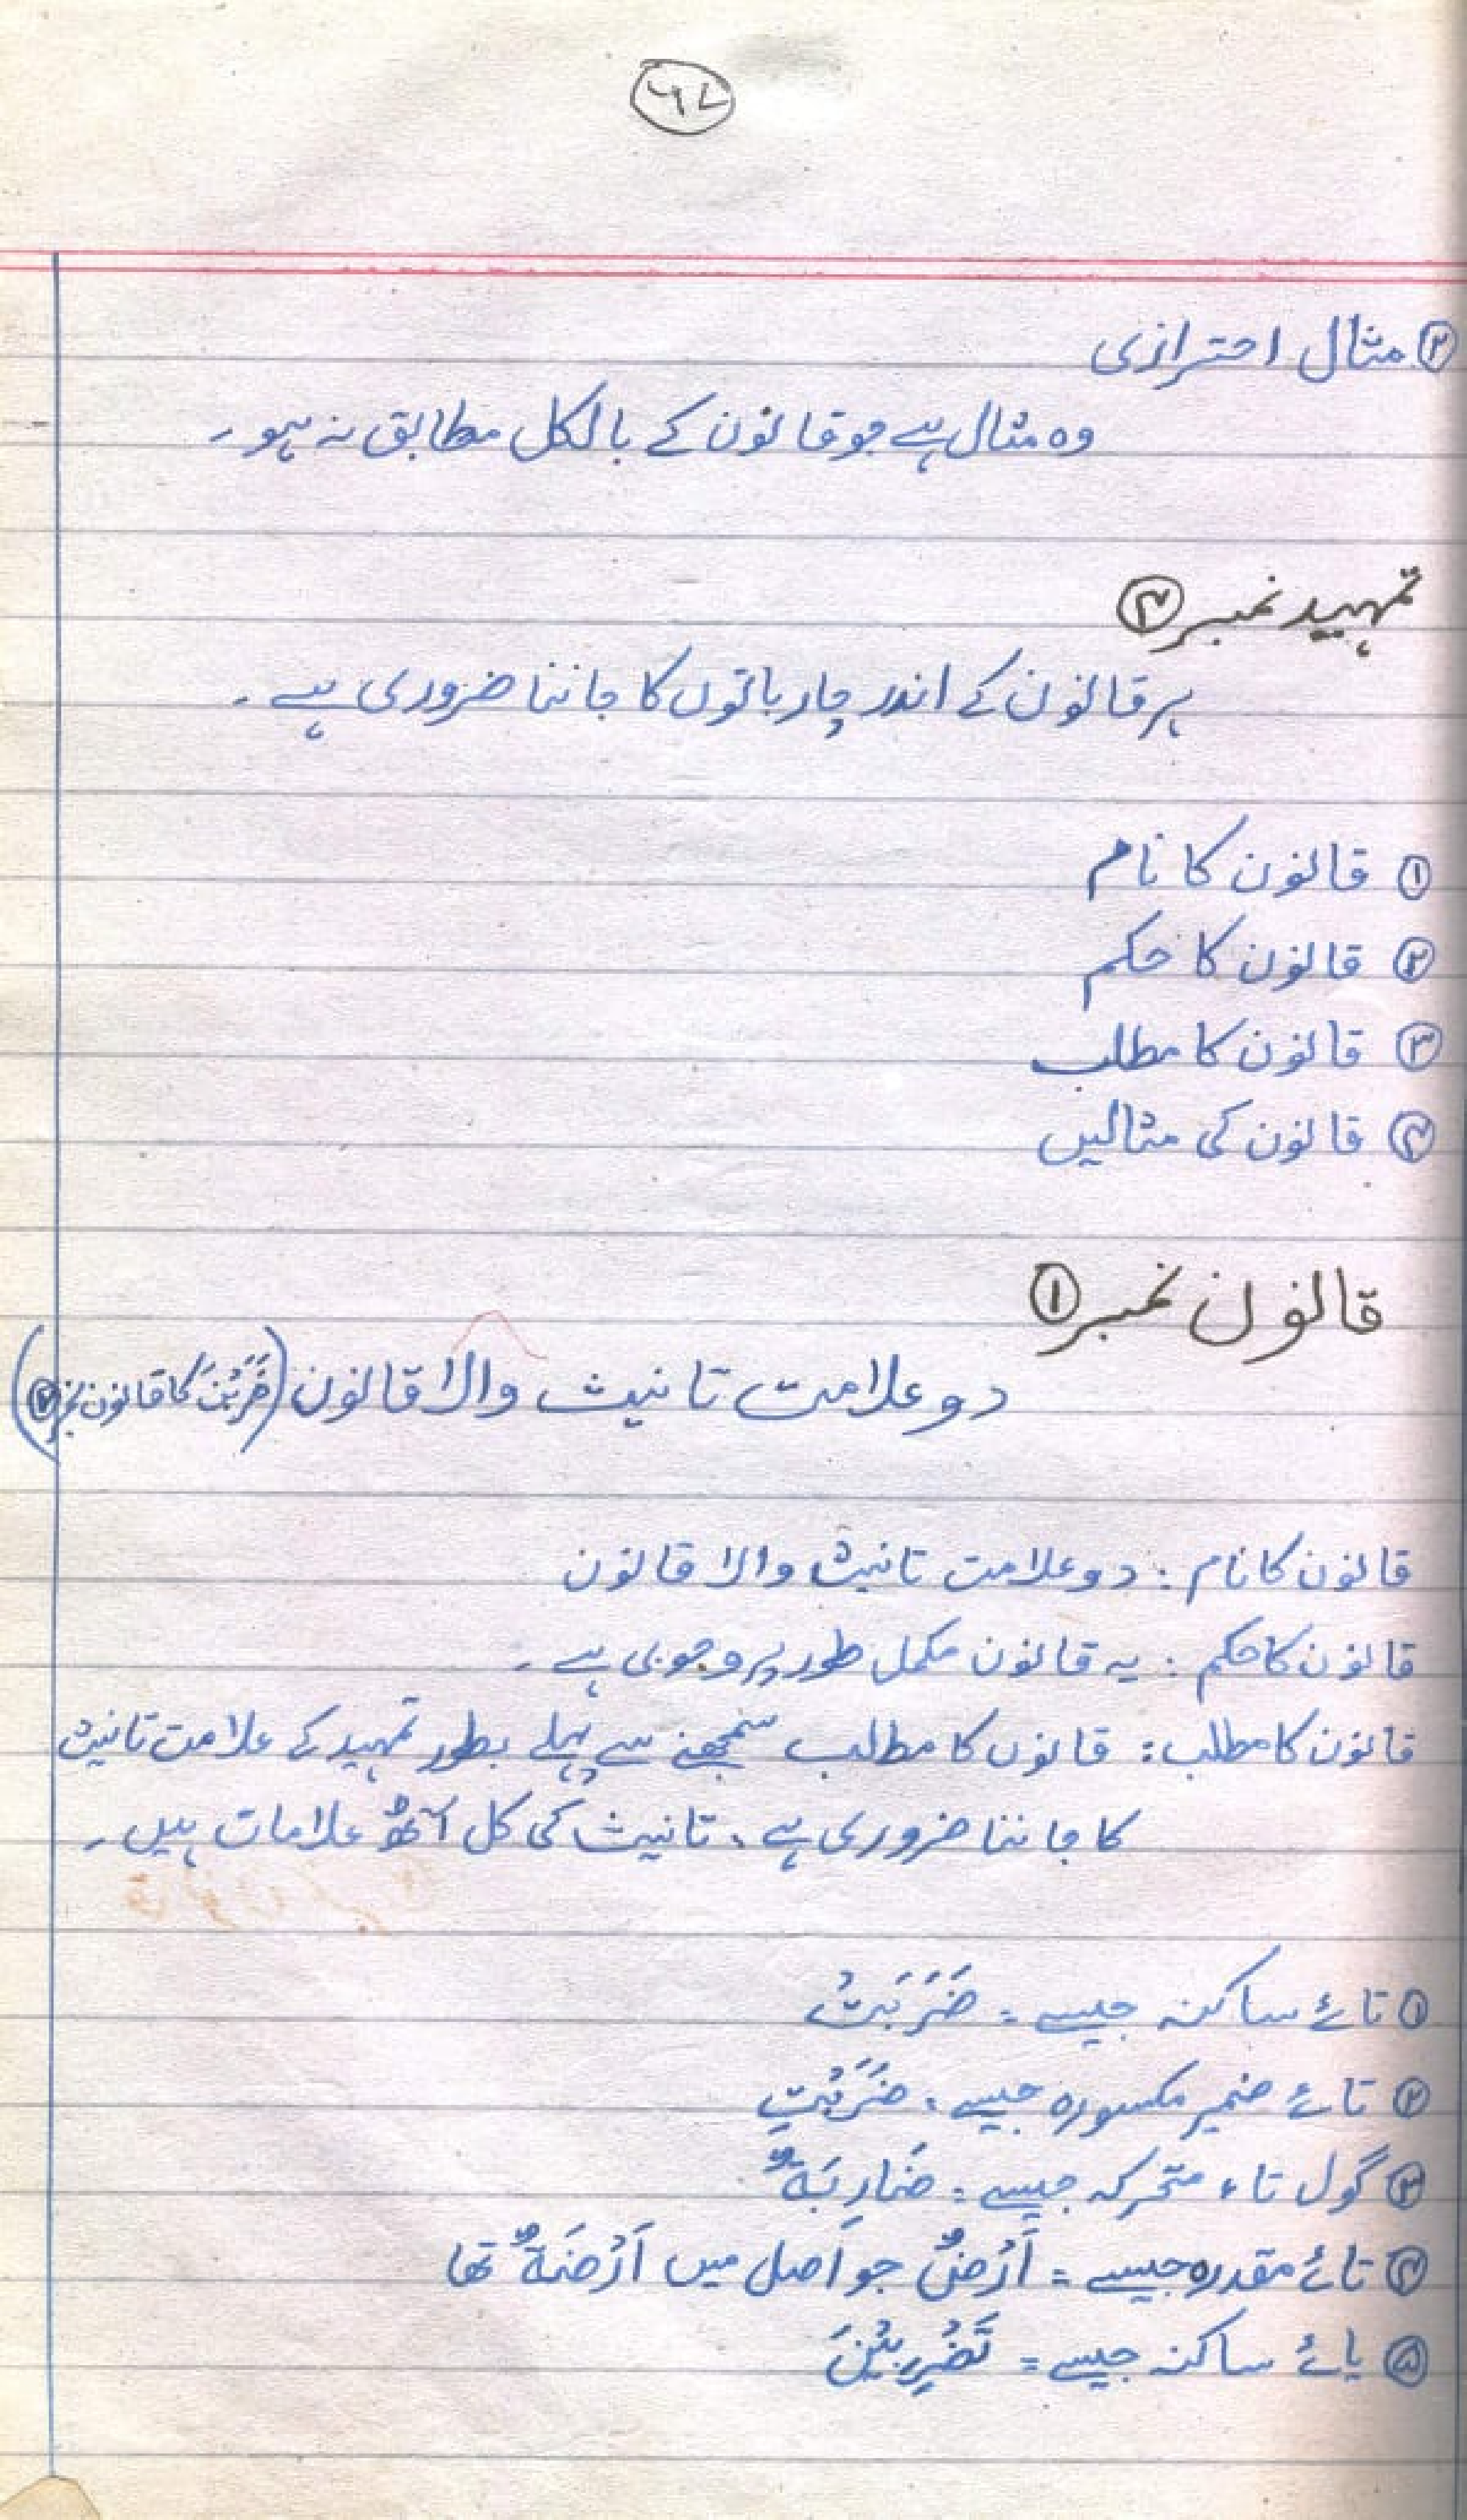 ۶۷
② مثال احترازی
وہ مثال ہے جو قانون کے بالکل مطابق نہ ہو ۔
تمہید نمبر ④
ہر قانون کے اندر چار باتوں کا جاننا ضروری ہے ۔
① قانون کا نام
② قانون کا حکم
③ قانون کا مطلب
④ قانون کی مثالیں
قانون نمبر ①
دو علامت تانیث والا قانون (ضَرَبْنَ کا قانون نمبر②)
قانون کا نام : دو علامت تانیث والا قانون
قانون کا حکم : یہ قانون مکمل طور پر وجوبی ہے ۔
قانون کا مطلب : قانون کا مطلب سمجھنے سے پہلے بطور تمہید کے علامت تانیث
کا جاننا ضروری ہے ، تانیث کی کل آٹھ علامات ہیں ۔
① تائے ساکنہ جیسے = ضَرَبَتْ
② تائے ضمیر مکسورہ جیسے = ضَرَبْتِ
③ گول تاء متحرکہ جیسے = ضَارِبَةٌ
④ تائے مقدرہ جیسے = اَرْضٌ جو اصل میں اَرْضَةٌ تھا
⑤ یائے ساکنہ جیسے = تَضْرِبِیْنَ